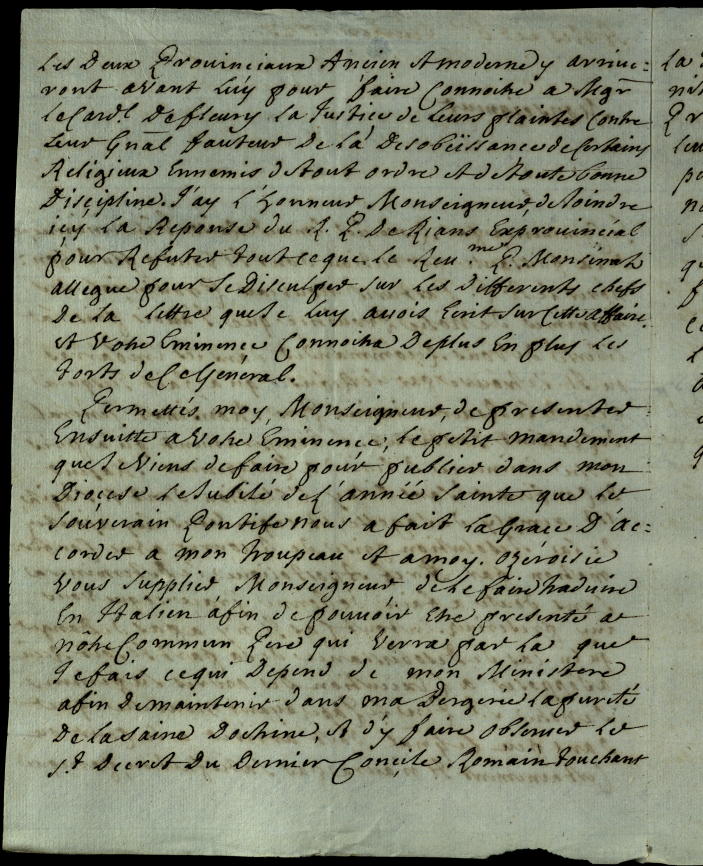 Les Deux Provinciaux Ancien et moderne y arrive=
ront avant luy pour faire Connoitre a Mgr
le Card.l Defleury La Justice de Leurs plaintes Contre
Leur Gnâl fauteur De La Desobeïssance de Certains
Religieux Ennemis detout ordre et detoute bonne
Discipline. J'ay L'Honneur Monseigneur, de Joindre
icy La Reponse du R. P. De Rians Exprovincial
pour Refuter tout ceque le Reu.me P. Monsinati
allegue pour se Disculper sur Les Differents chefs
De La Lettre que Je Luy auois Ecrit sur Cette affaire,
et Votre Eminence Connoitra Deplus En plus Les
torts de Ce General.
Permettés moy, Monseigneur, de presenter
Ensuitte a Votre Eminence, le petit mandement
que Je Viens de faire pour publier dans mon
Diocese Le Jubilé de L'année Sainte que Le
Souverain Pontife nous a fait La Grace D'ac=
corder a mon troupeau et a moy. ozerois ie
Vous Supplier Monseigneur de Le faire traduire
En Italien afin de pouvoir Etre presenté a
nôtre Commun Pere qui Verra par La que
Je fais cequi Depend de mon Ministere
afin De maintenir dans ma Bergerie La pureté
De La saine Doctrine, et d'y faire observer Le
St. Decret Du Dernier Concile Romain touchant